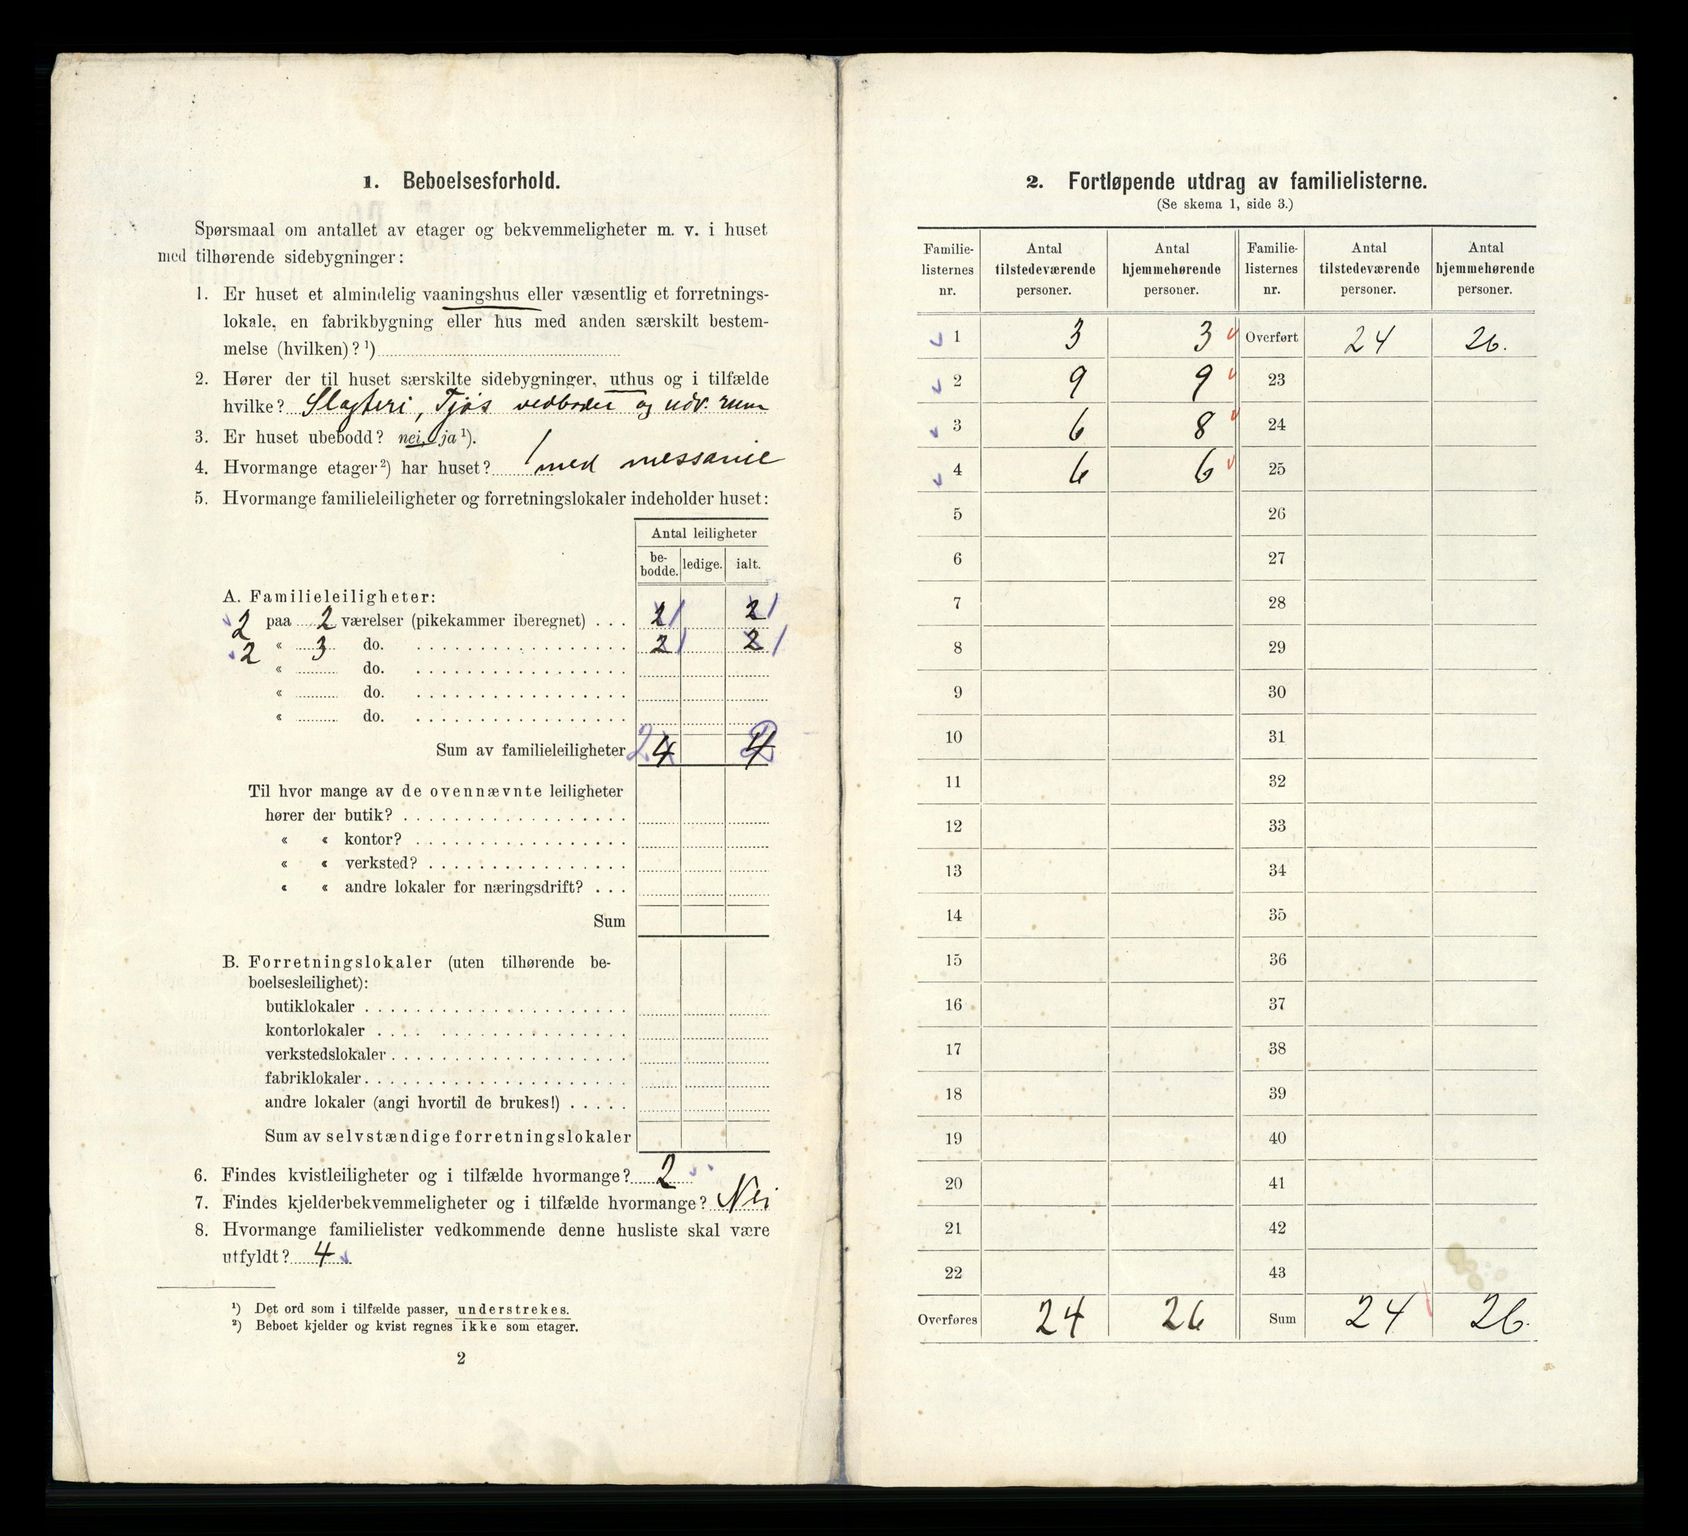 1. Beboelsesforhold.
Spørsmaal om antallet av etager og bekvemmeligheter m. v. i huset
med tilhørende sidebygninger:
1. Er huset et almindelig vaaningshus eller væsentlig et forretnings-
lokale, en fabrikbygning eller hus med anden særskilt bestem-
melse (hvilken)? ¹)
2. Hører der til huset særskilte sidebygninger, uthus og i tilfælde
hvilke? Slagteri, Fjøs vedboder og udv. rum
3. Er huset ubebodd? nei, ja ¹).
4. Hvormange etager ²) har huset? 1 med messanie
5. Hvormange familieleiligheter og forretningslokaler indeholder huset:
Antal leiligheter
be-bodde. ledige. ialt.
A. Familieleiligheter:
2 paa 2 værelser (pikekammer iberegnet) . . . 2 1 2 1
2 « 3 do. 2 1 2 1
« do.
« do.
« do.
Sum av familieleiligheter 2 4 4 2
Til hvor mange av de ovennævnte leiligheter
hører der butik?
« « kontor?
« « verksted?
« « andre lokaler for næringsdrift?
Sum
B. Forretningslokaler (uten tilhørende be-
boelsesleilighet):
butiklokaler
kontorlokaler
verkstedslokaler
fabriklokaler
andre lokaler (angi hvortil de brukes!)
Sum av selvstændige forretningslokaler
6. Findes kvistleiligheter og i tilfælde hvormange? 2
7. Findes kjelderbekvemmeligheter og i tilfælde hvormange? Nei
8. Hvormange familielister vedkommende denne husliste skal være
utfyldt? 4
¹) Det ord som i tilfælde passer, understrekes.
²) Beboet kjelder og kvist regnes ikke som etager.
2
2. Fortløpende utdrag av familielisterne.
(Se skema 1, side 3.)
Familie-listernes nr. Antal tilstedeværende personer. Antal hjemmehørende personer. Familie-listernes nr. Antal tilstedeværende personer. Antal hjemmehørende personer.
1 3 3 Overført 24 26.
2 9 9 23
3 6 8 24
4 6 6 25
5 26
6 27
7 28
8 29
9 30
10 31
11 32
12 33
13 34
14 35
15 36
16 37
17 38
18 39
19 40
20 41
21 42
22 43
Overføres 24 26 Sum 24 26.